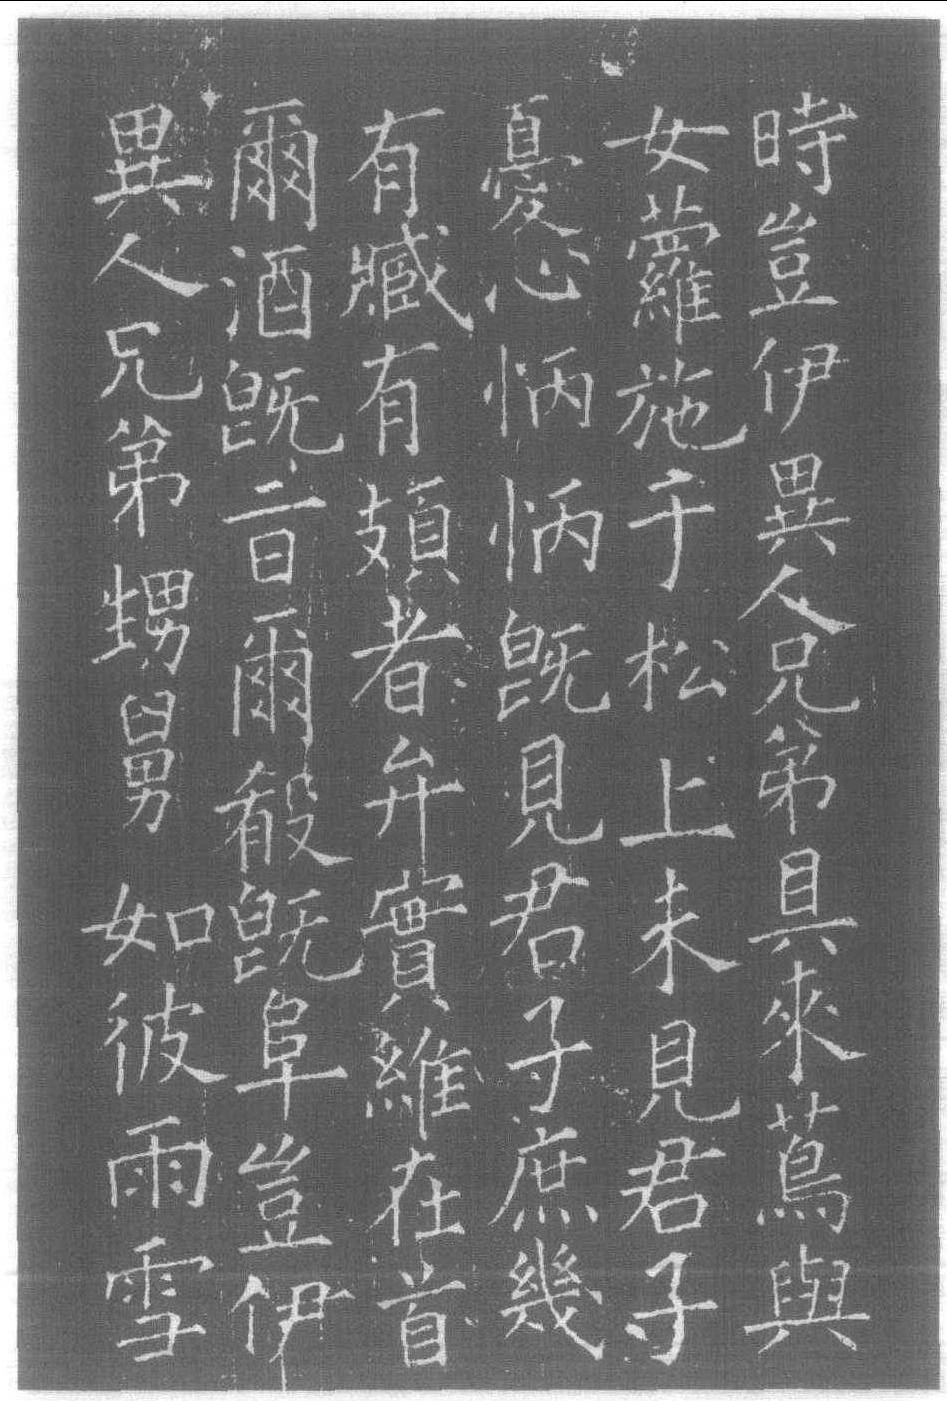 時豈伊異人兄弟具來蔦與
女蘿施于松上未見君子
憂心怲怲既見君子庶幾
有臧有頍者弁實維在首
爾酒既旨爾殽既阜豈伊
異人兄弟甥舅如彼雨雪